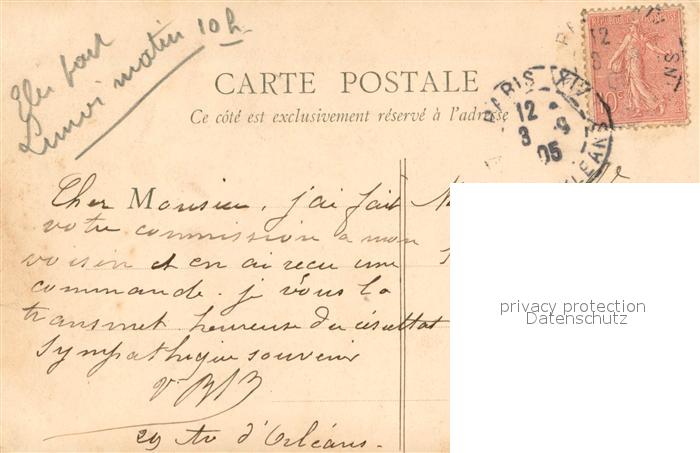 Lundi matin 10h
CARTE POSTALE
Ce côté est exclusivement réservé à l'adresse
REPUBLIQUE FRANÇAISE
10c
PARIS XIV
12
3 9
05
ORLEANS
Cher Monsieur, j'ai fait
votre commission a mon
voisin et en ai recu une
commande. je vous la
transmet. heureuse du résultat
Sympathique souvenir
29 Av d'Orléans.
privacy protection
Datenschutz